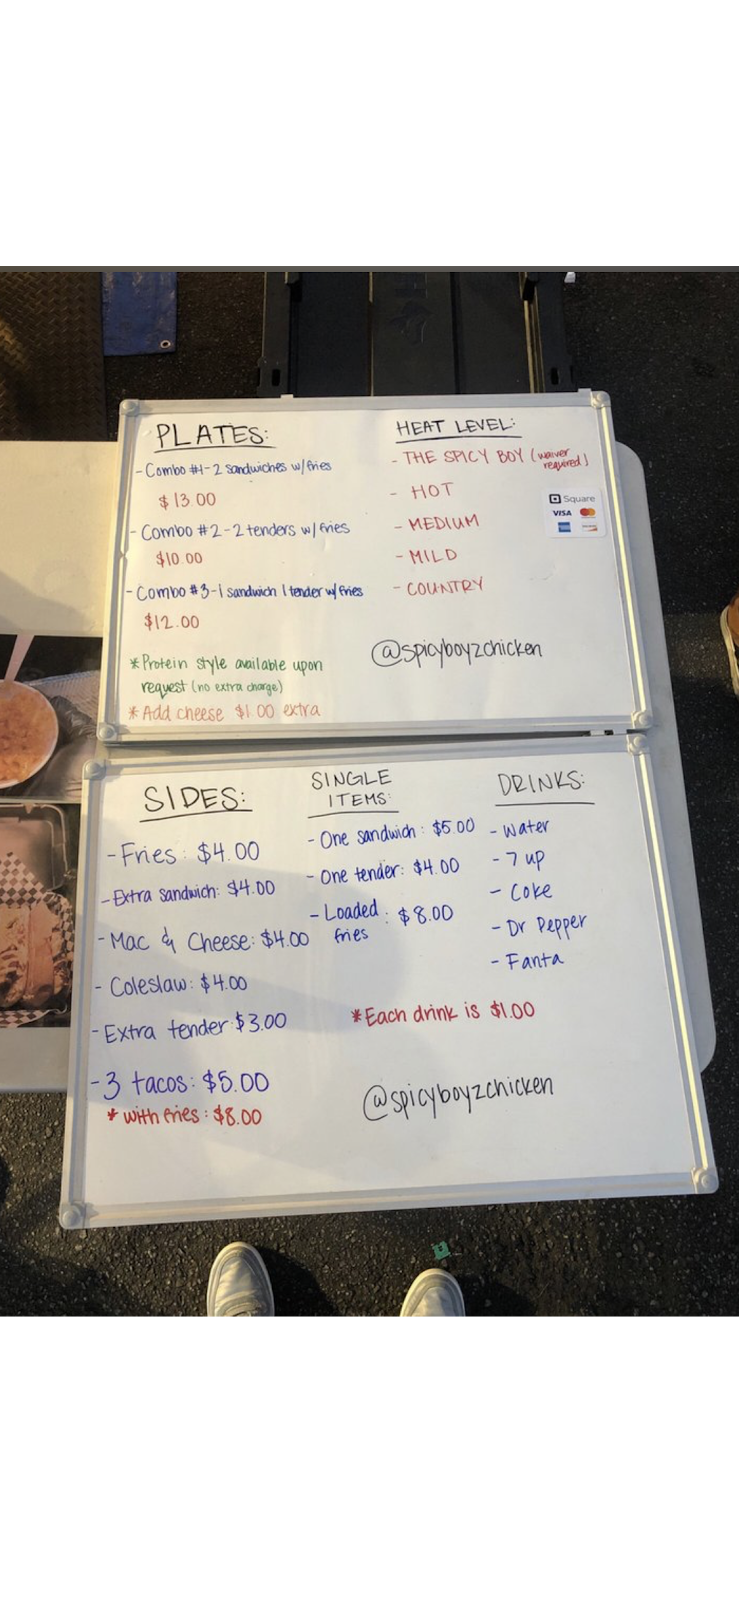 PLATES:
- Combo #1-2 sandwiches w/fries
$13.00
- Combo #2-2 tenders w/fries
$10.00
- Combo #3-1 sandwich 1 tender w/fries
$12.00
* Protein style available upon
request (no extra charge)
* Add cheese $1.00 extra
HEAT LEVEL:
- THE SPICY BOY (waiver
required)
- HOT
- MEDIUM
- MILD
- COUNTRY
Square
VISA
@spicyboyzchicken
SIDES:
- Fries: $4.00
- Extra sandwich: $4.00
- Mac & Cheese: $4.00
- Coleslaw: $4.00
- Extra tender: $3.00
- 3 tacos: $5.00
* with fries: $8.00
SINGLE
ITEMS:
- One sandwich: $5.00
- One tender: $4.00
- Loaded : $8.00
fries
DRINKS:
- Water
- 7 up
- Coke
- Dr Pepper
- Fanta
* Each drink is $1.00
@spicyboyzchicken